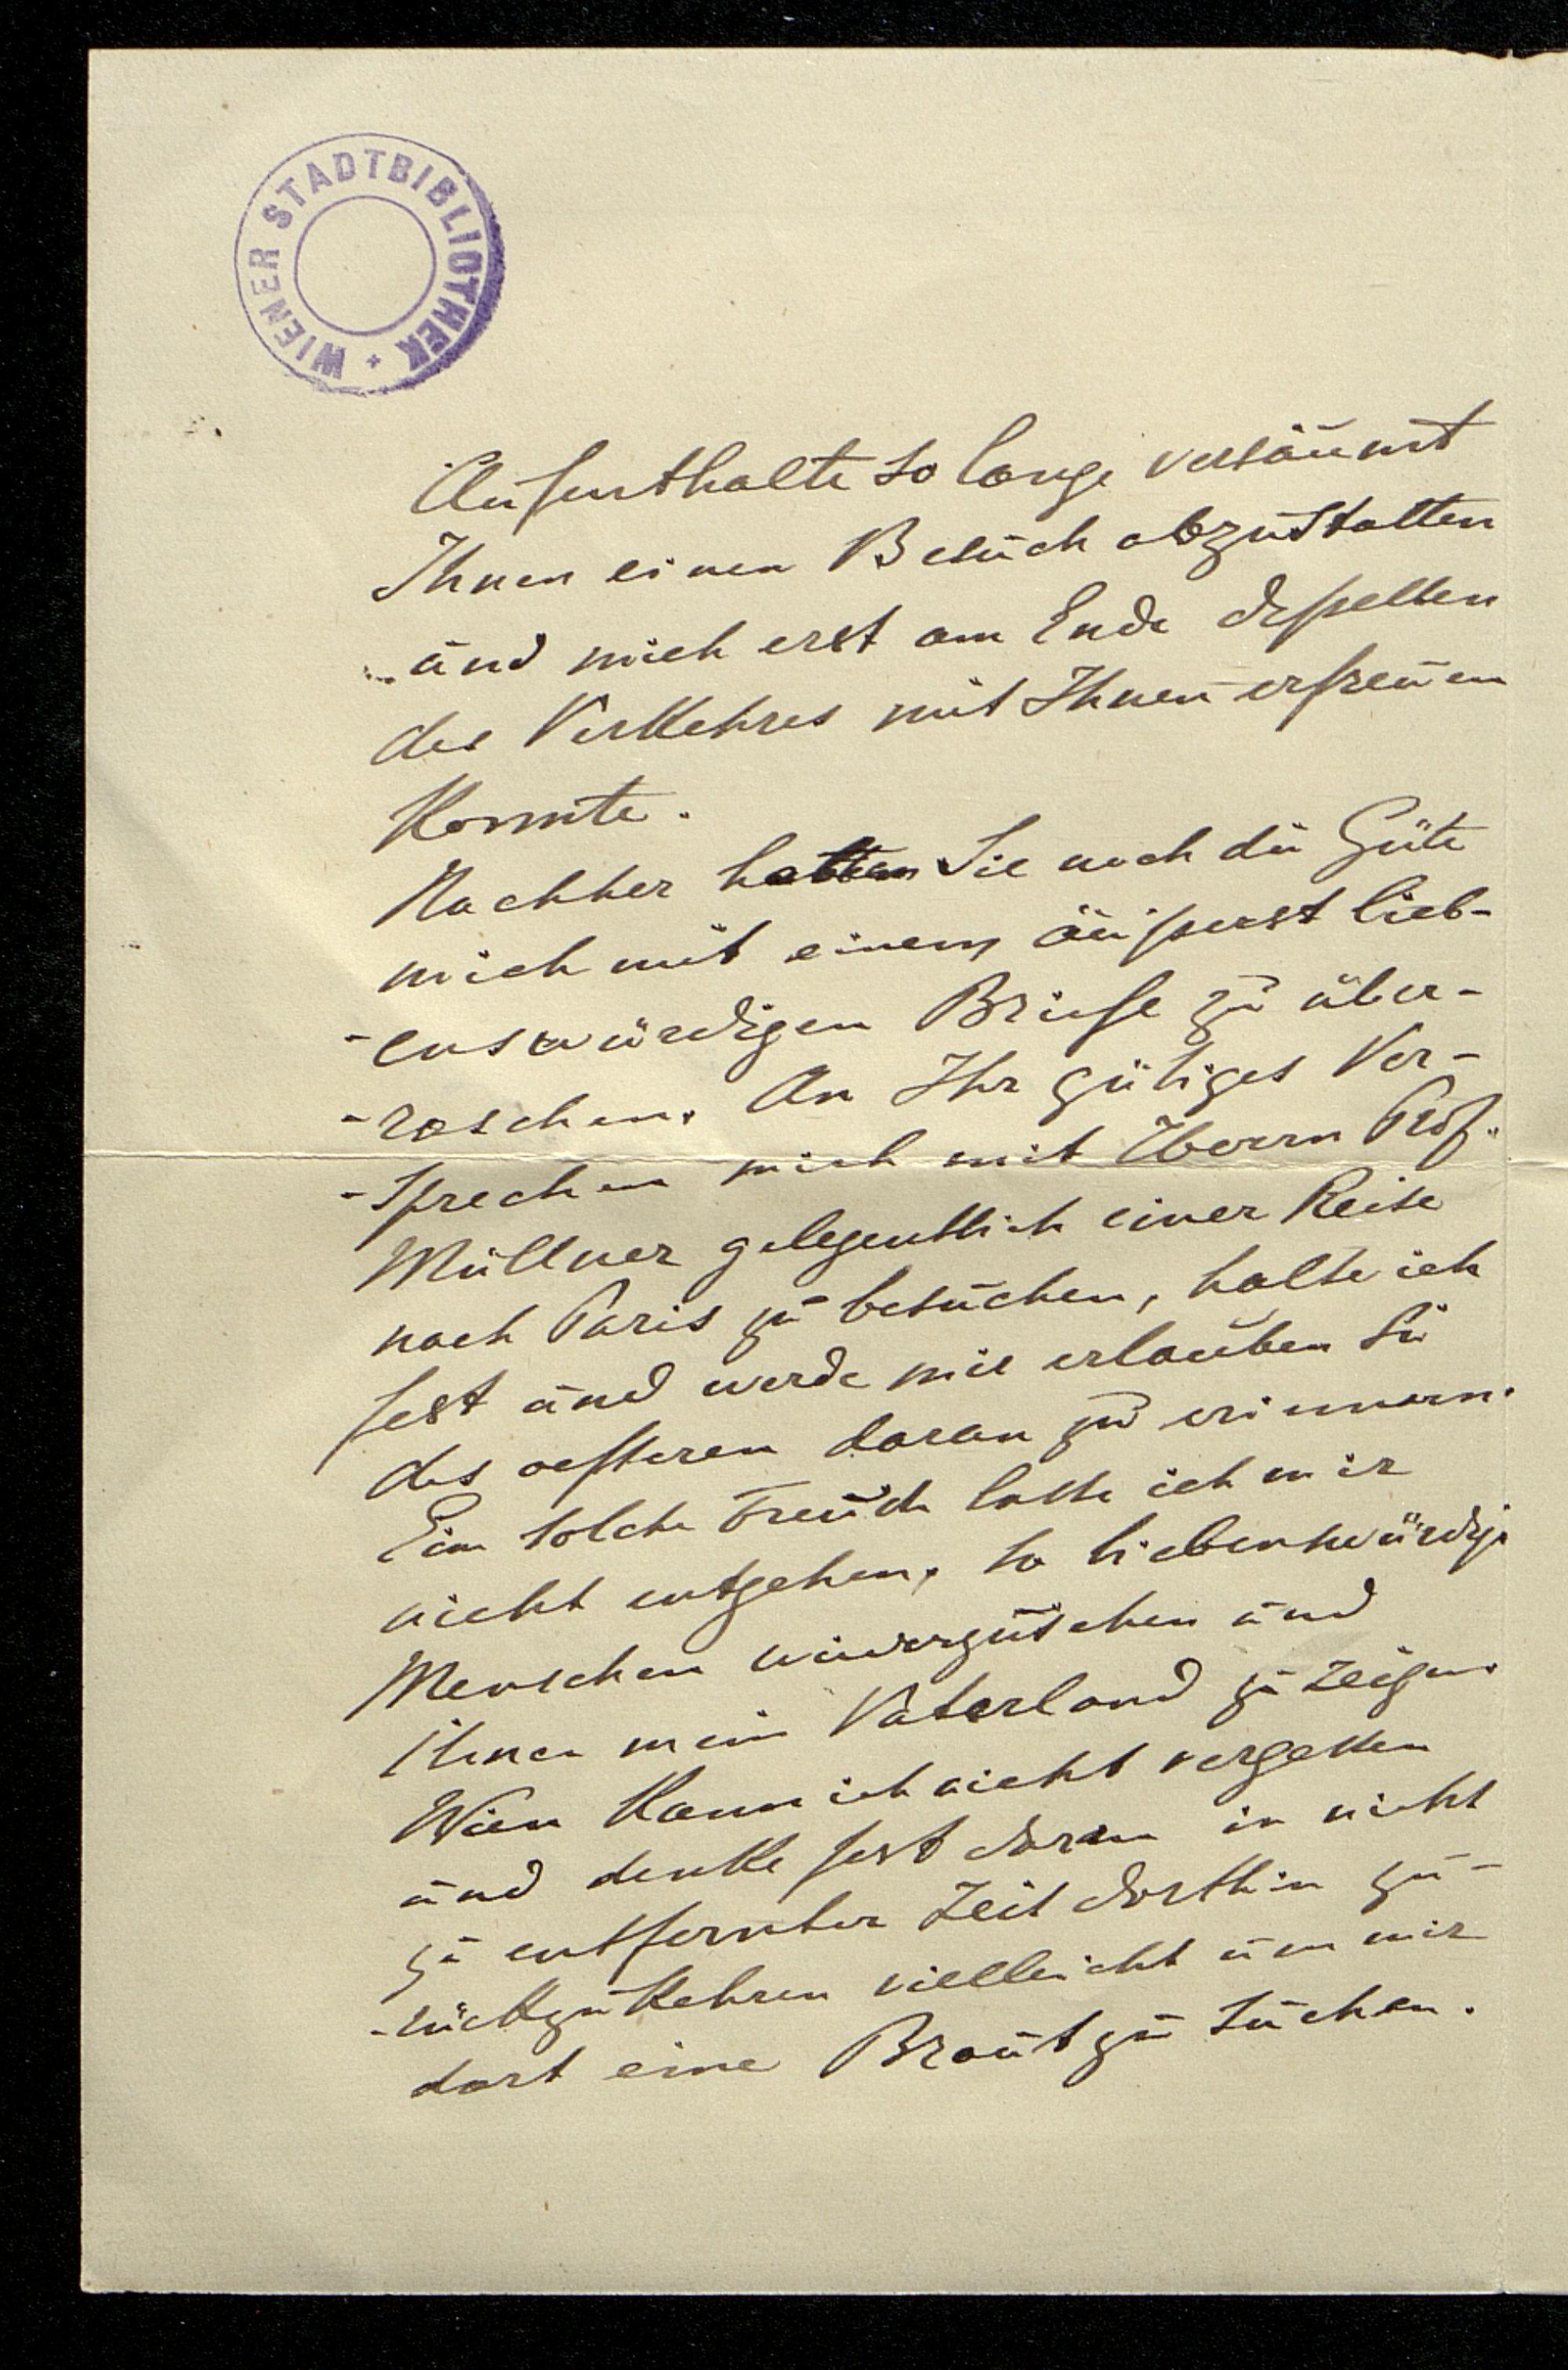 WIENER STADTBIBLIOTHEK
Aufenthalte so lange versäumt
Ihnen einen Besuch abzustatten
und mich erst am Ende desselben
des Verkehres mit Ihnen erfreuen
konnte.
Nachher hatten Sie noch die Güte
mich mit einem äusserst lieb-
-enswürdigen Briefe zu über-
-raschen. An Ihr gütiges Ver-
-sprechen mich mit Herrn Prof.
Müllner gelegentlich einer Reise
nach Paris zu besuchen, halte ich
fest und werde mir erlauben Sie
des oefteren daran zu erinnern.
Eine solche Freude lasse ich mir
nicht entgehen, so liebenswürdige
Menschen wiederzusehen und
ihnen mein Vaterland zu zeigen.
Wien kann ich nicht vergessen
und denke fest daran in nicht
zu entfernter Zeit dorthin zu-
-rückzukehren vielleicht um mir
dort eine Braut zu suchen.